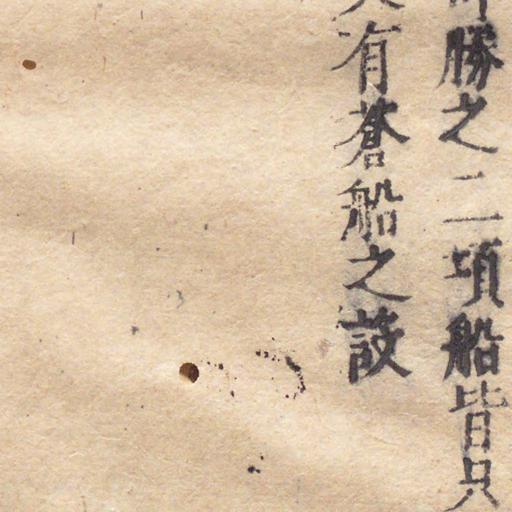 勝之二項船皆只
有蒼船之設